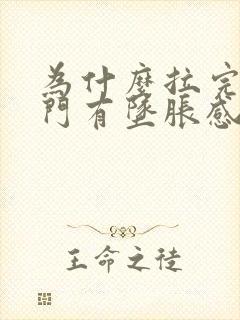 為什麼拉完
門有墜脹感
王命之徒